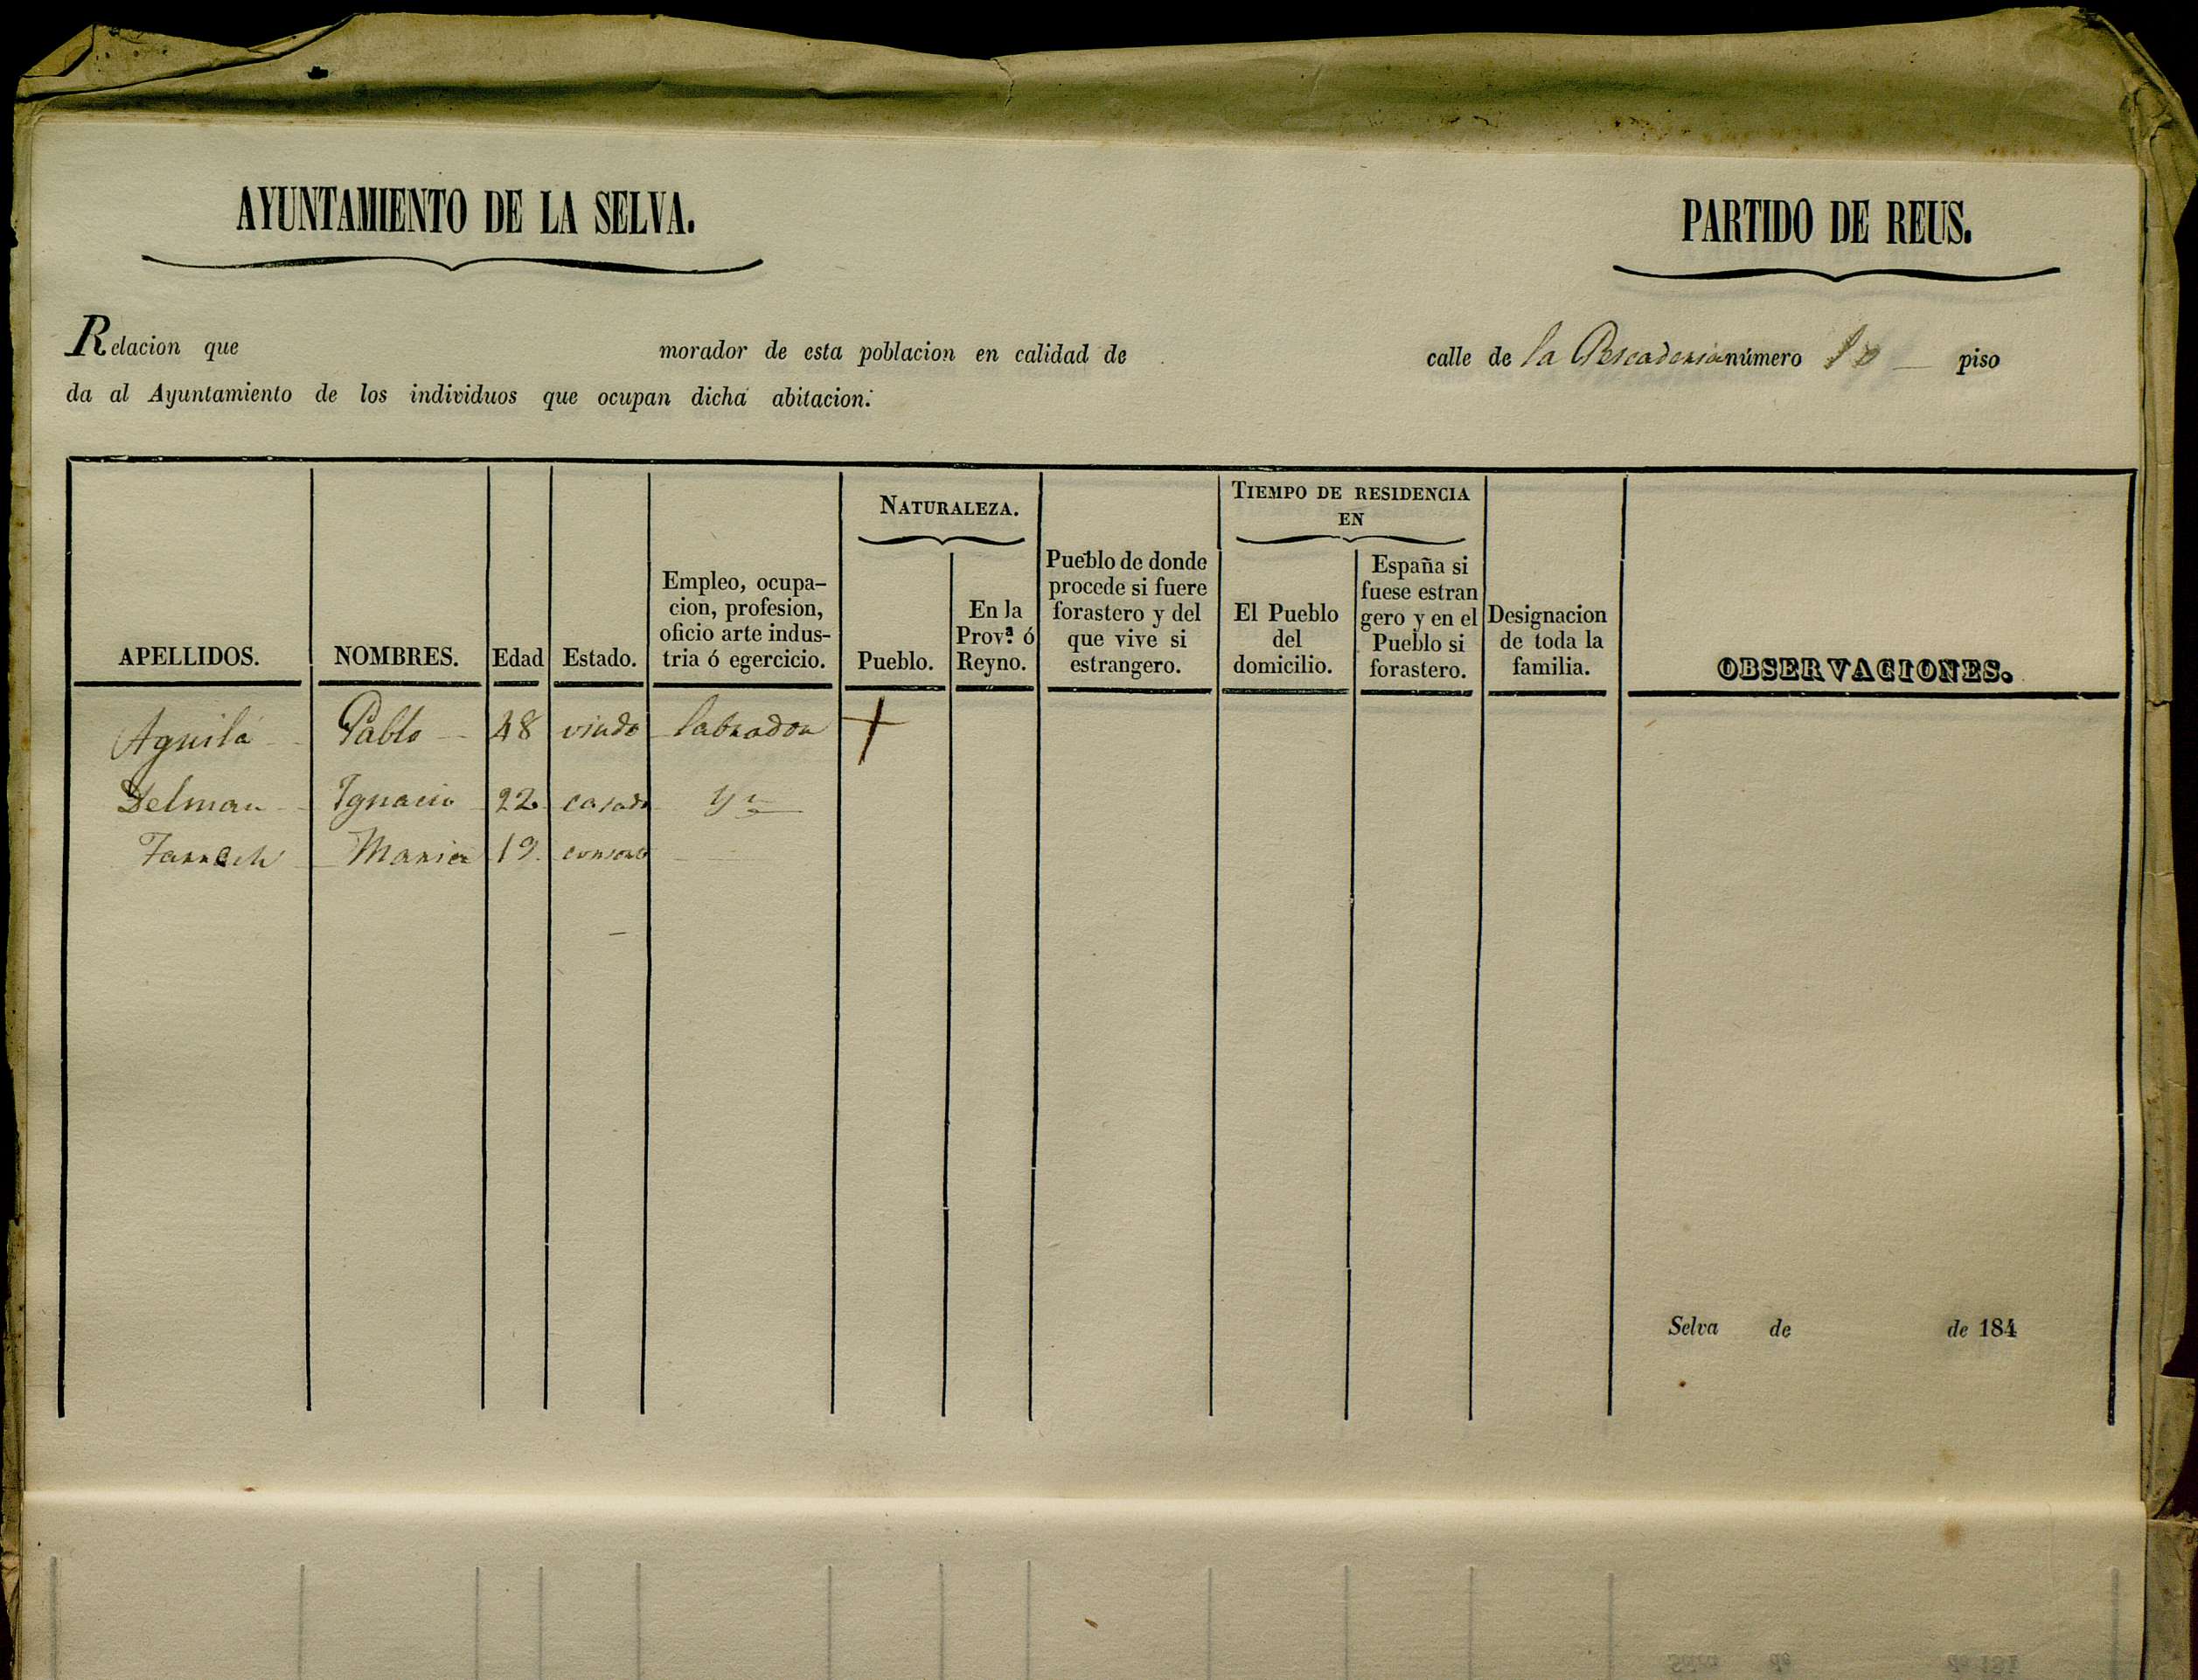 AYUNTAMIENTO DE LA SELVA.
PARTIDO DE REUS.
Relacion que morador de esta poblacion en calidad de calle de la Pescaderia número 10 piso
da al Ayuntamiento de los individuos que ocupan dicha abitacion:
APELLIDOS.
NOMBRES.
Edad
Estado.
Empleo, ocupa-
cion, profesion,
oficio arte indus-
tria ó egercicio.
NATURALEZA.
Pueblo.
En la
Prov.ª ó
Reyno.
Pueblo de donde
procede si fuere
forastero y del
que vive si
estrangero.
TIEMPO DE RESIDENCIA
EN
El Pueblo
del
domicilio.
España si
fuese estran
gero y en el
Pueblo si
forastero.
Designacion
de toda la
familia.
OBSERVACIONES.
Aguilá Pablo 48 viudo labrador +
Delmau Ignacio 22 casado
Maria 19 consorte
Selva de de 184